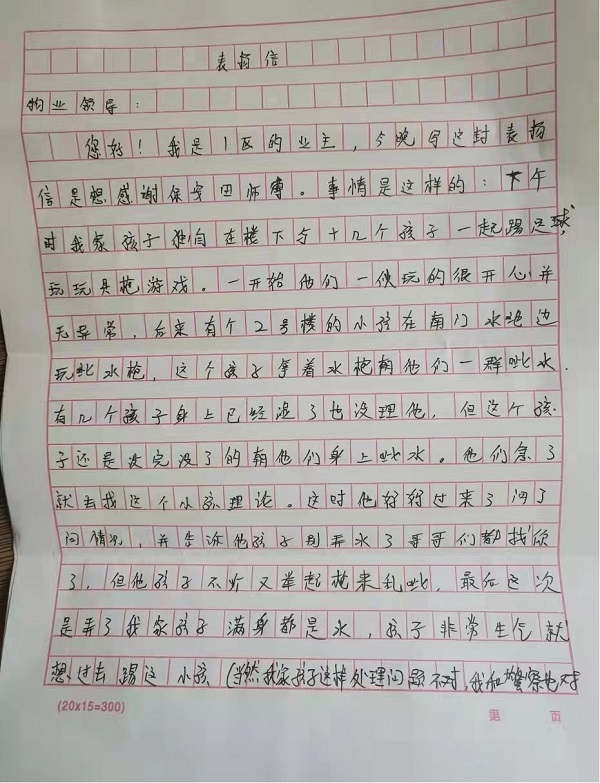 表扬信
物业领导：
您好！我是1区的业主，今晚写这封表扬
信是想感谢保安田师傅。事情是这样的：下午
时我家孩子独自在楼下与十几个孩子一起踢足球，
玩玩具枪游戏。一开始他们一伙玩的很开心并
无异常，后来有个2号楼的小孩在南门水池边
玩呲水枪，这个孩子拿着水枪朝他们一群呲水.
有几个孩子身上已经湿了也没理他，但这个孩
子还是没完没了的朝他们身上呲水。他们急了
就去找这个小孩理论。这时他妈妈过来了问了
问情况，并告诉他孩子别弄水了哥哥们都找你
了，但他孩子不听又举起枪来乱呲，最后这次
是弄了我家孩子满身都是水，孩子非常生气就
想过去踢这小孩（当然我家孩子这样处理问题不对，我和警察也对
(20x15=300)
第 页